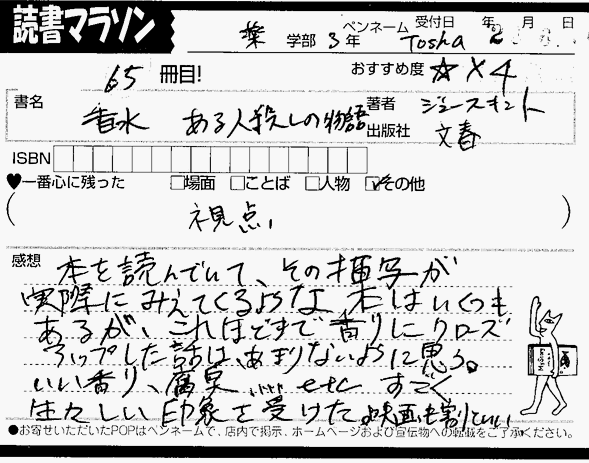 読書マラソン
薬 学部 3 年 ペンネーム Tosha 受付日 2 年 月 日
65 冊目! おすすめ度 ☆×4
書名 香水 ある人殺しの物語
著者 ジュースキント
出版社 文春
ISBN
♥一番心に残った □場面 □ことば □人物 ☑その他
( 視点, )
感想
本を読んでいて、その描写が
実際にみえてくるような本はいくつも
あるが、これほどまで香りにクローズ
アップした話は、あまりないように思う。
いい香り、腐臭 …… etc すごく
生々しい印象を受けた。映画も割といい
●お寄せいただいたPOPはペンネームで、店内で掲示、ホームページおよび宣伝物への転載をご了承ください。